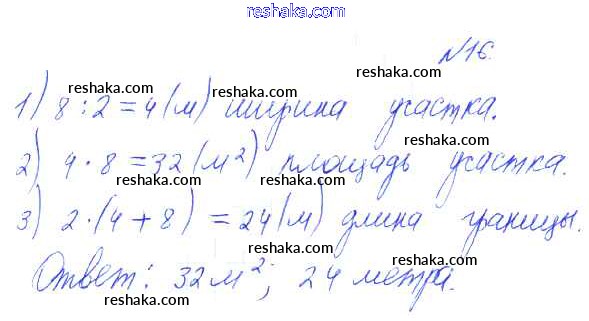 www.reshaka.com
№16.
1) 8 : 2 = 4 (м) ширина участка.
2) 4 · 8 = 32 (м²) площадь участка.
3) 2 · (4 + 8) = 24 (м) длина границы.
Ответ: 32 м²; 24 метра.
reshaka.com
reshaka.com
reshaka.com
reshaka.com
reshaka.com
reshaka.com
reshaka.com
reshaka.com
reshaka.com
reshaka.com
reshaka.com
reshaka.com